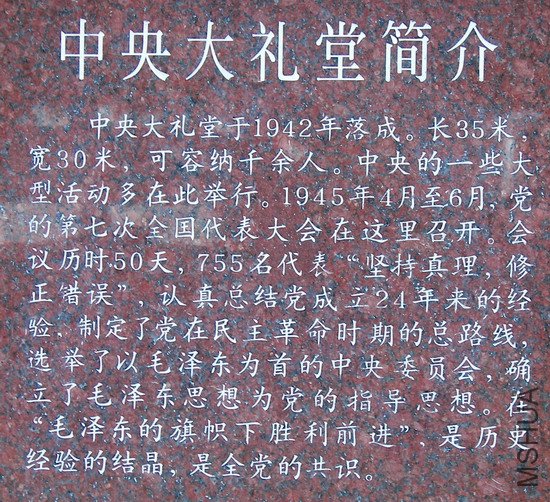 中央大礼堂简介
中央大礼堂于1942年落成。长35米，
宽30米，可容纳千余人。中央的一些大
型活动多在此举行。1945年4月至6月，党
的第七次全国代表大会在这里召开。会
议历时50天，755名代表“坚持真理，修
正错误”，认真总结党成立24年来的经
验，制定了党在民主革命时期的总路线，
选举了以毛泽东为首的中央委员会，确
立了毛泽东思想为党的指导思想。在
“毛泽东的旗帜下胜利前进”，是历史
经验的结晶，是全党的共识。
MSHUA